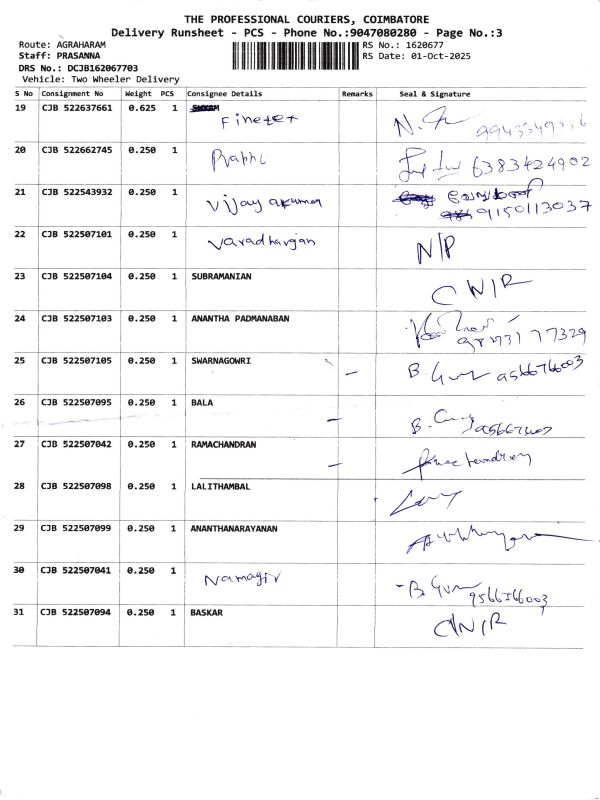 THE PROFESSIONAL COURIERS, COIMBATORE
Delivery Runsheet - PCS - Phone No.:9047080280 - Page No.:3
Route: AGRAHARAM
RS No.: 1620677
Staff: PRASANNA
RS Date: 01-Oct-2025
DRS No.: DCJB162067703
Vehicle: Two Wheeler Delivery
S No Consignment No Weight PCS Consignee Details Remarks Seal & Signature
19 CJB 522637661 0.625 1
20 CJB 522662745 0.250 1 Prabhu 6383424902
21 CJB 522543932 0.250 1 Vijay akumar 9150113037
22 CJB 522507101 0.250 1 Varadhargan N/P
23 CJB 522507104 0.250 1 SUBRAMANIAN CN/R
24 CJB 522507103 0.250 1 ANANTHA PADMANABAN
25 CJB 522507105 0.250 1 SWARNAGOWRI - B.
26 CJB 522507095 0.250 1 BALA - B.
27 CJB 522507042 0.250 1 RAMACHANDRAN -
28 CJB 522507098 0.250 1 LALITHAMBAL
29 CJB 522507099 0.250 1 ANANTHANARAYANAN
30 CJB 522507041 0.250 1 Namagir - B.
31 CJB 522507094 0.250 1 BASKAR CN/R